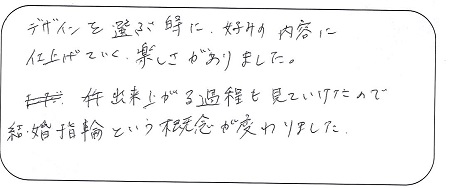 デザインを選ぶ時に、好みの内容に
仕上げていく楽しさがありました。
出来上がる過程も見ていけたので
結婚指輪という概念が変わりました。